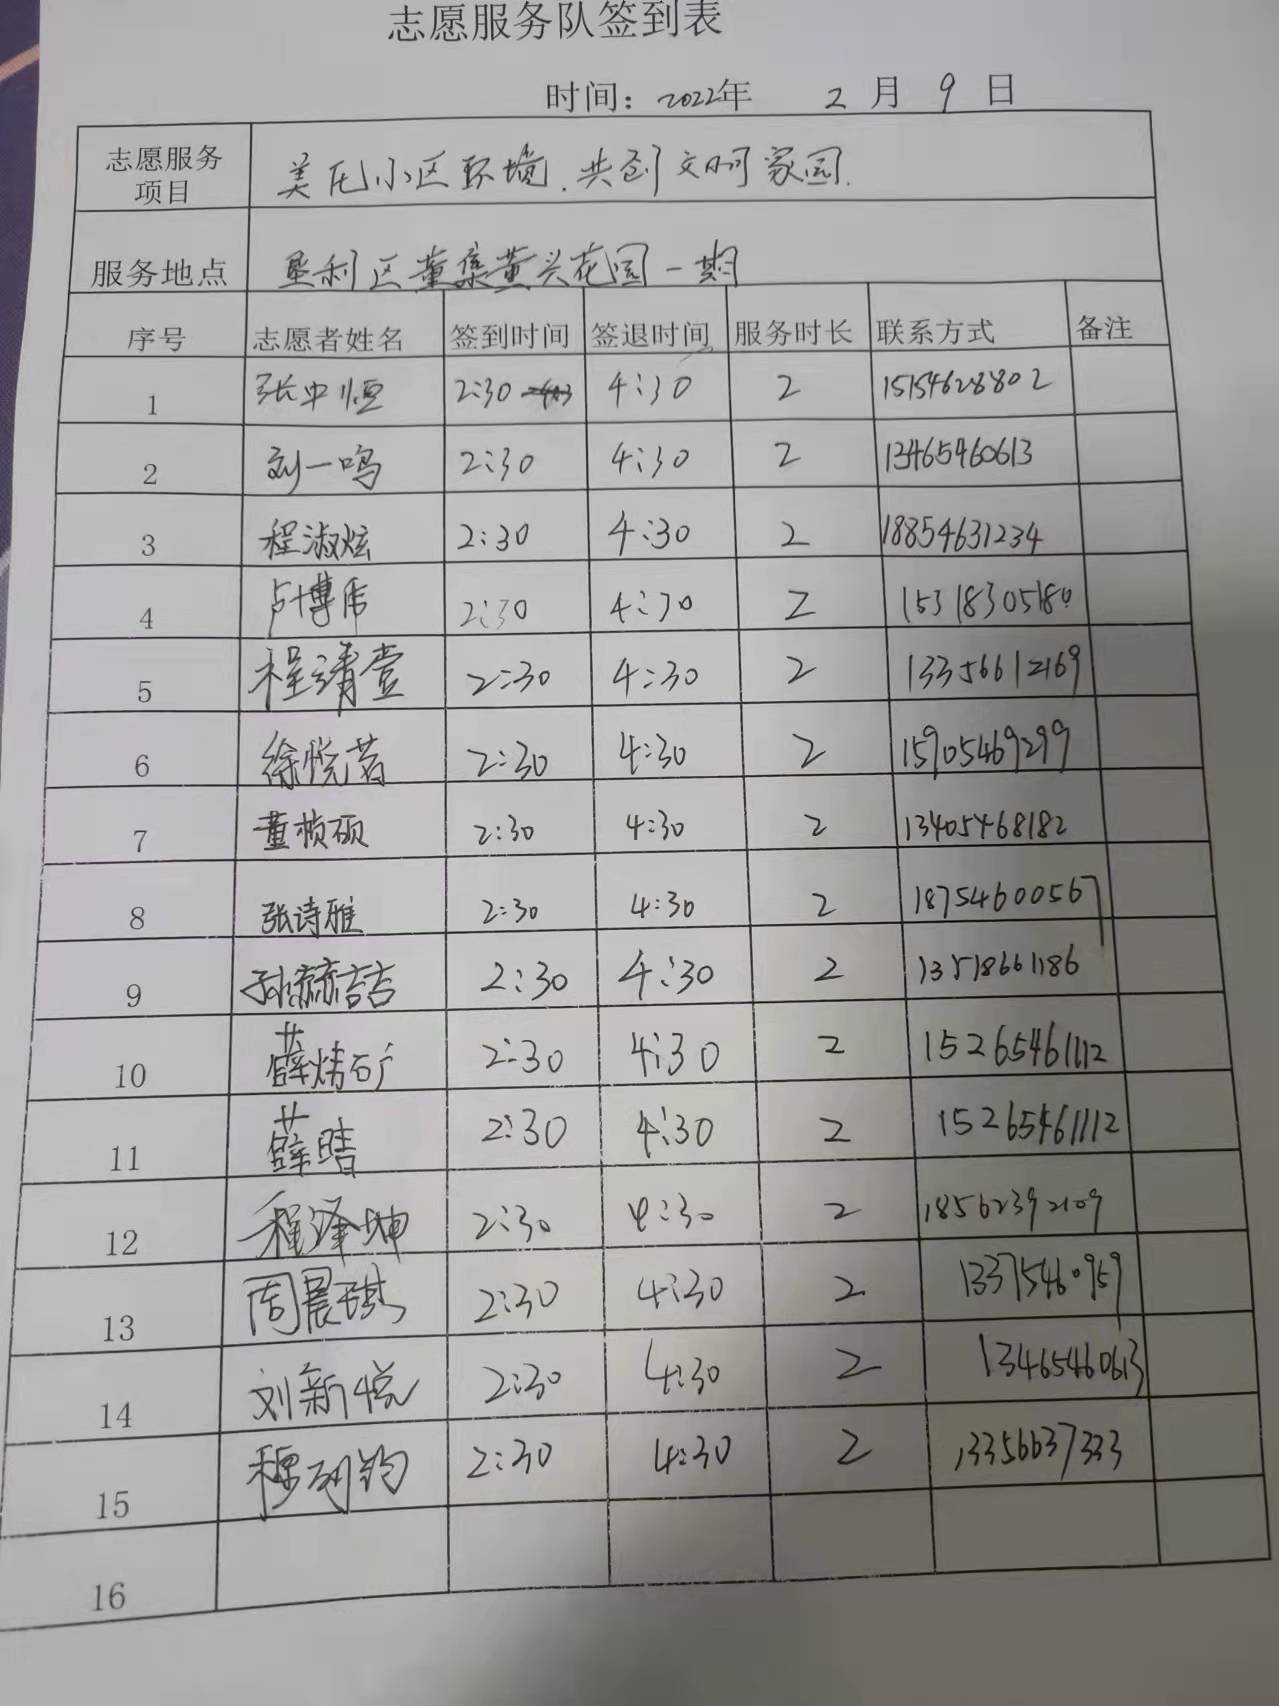 志愿服务队签到表
时间：2022年 2 月 9 日
志愿服务项目 美化小区环境.共创文明家园.
服务地点 垦利区董集黄兴花园一期
序号 志愿者姓名 签到时间 签退时间 服务时长 联系方式 备注
1 张中恒 2:30 4:30 2 15154628802
2 刘一鸣 2:30 4:30 2 13465460613
3 程淑炫 2:30 4:30 2 18854631234
4 卢博伟 2:30 4:30 2 15318305180
5 程靖萱 2:30 4:30 2 13356612169
6 徐悦茗 2:30 4:30 2 15905469299
7 董桢硕 2:30 4:30 2 13405468182
8 张诗雅 2:30 4:30 2 18754600567
9 孙赫喆 2:30 4:30 2 13518661186
10 薛炜 2:30 4:30 2 15265461112
11 薛晴 2:30 4:30 2 15265461112
12 程泽坤 2:30 4:30 2 18562392109
13 周晨琪 2:30 4:30 2 13375460959
14 刘新悦 2:30 4:30 2 13465460613
15 2:30 4:30 2 13356637333
16